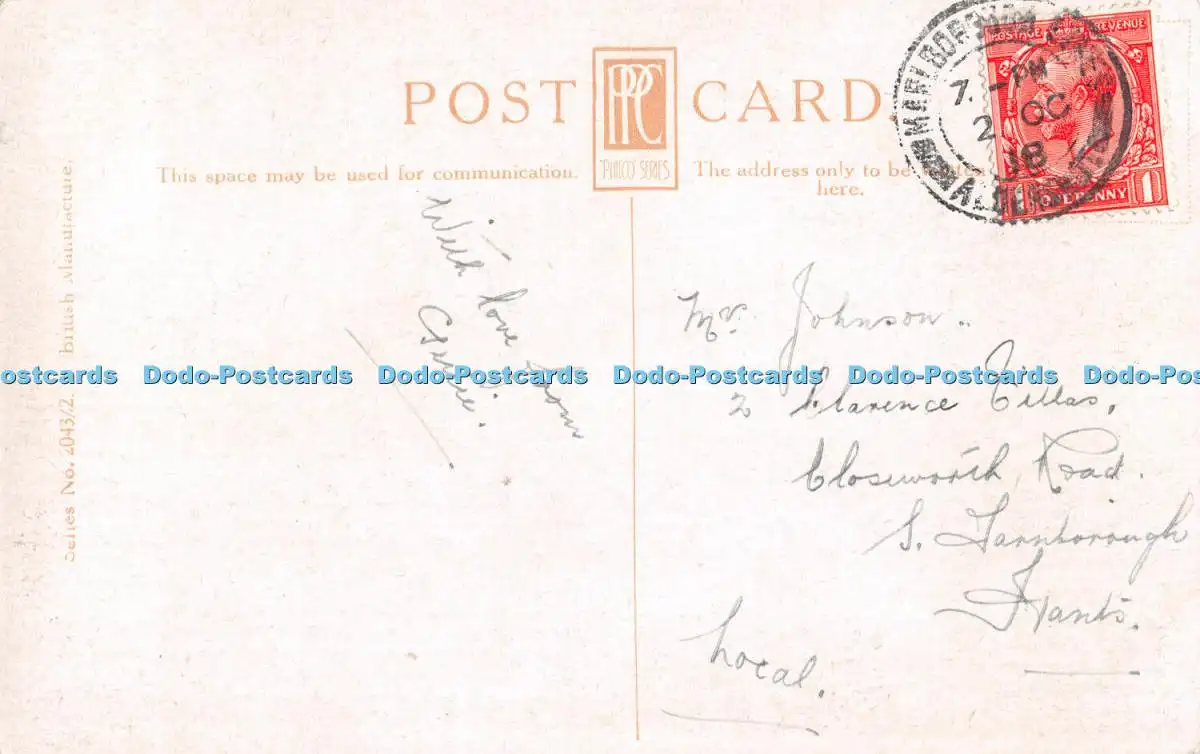 POST CARD
PPC
"PHILCO" SERIES
This space may be used for communication.
The address only to be
here.
Series No. 2043/2. British Manufacture.
POSTAGE REVENUE
1 ONE PENNY 1
MARLBOROUGH LINES
ALDERSHOT
7. - PM
2 OC
18
With love from
Mrs. Johnson.
2 Clarence Villas,
Closeworth Road.
S. Farnborough
Hants.
Local.
ostcards Dodo-Postcards Dodo-Postcards Dodo-Postcards Dodo-Postcards Dodo-Postca